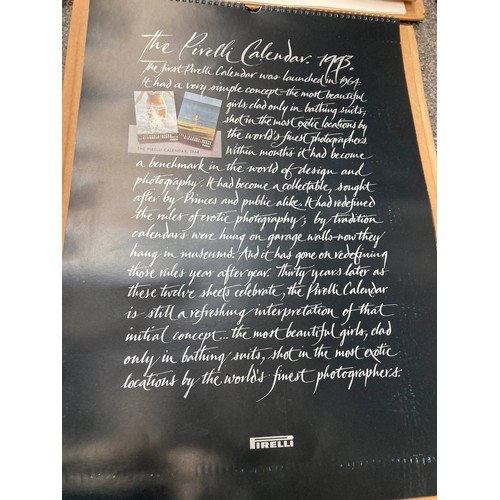 The Pirelli Calendar. 1993.
The first Pirelli Calendar was launched in 1964.
It had a very simple concept-the most beautiful
girls, clad only in bathing suits,
shot in the most exotic locations by
the world's finest photographers.
Within months it had become
a benchmark in the world of design and
photography. It had become a collectable, sought
after by Princes and public alike. It had redefined
the rules of erotic photography; by tradition
calendars were hung on garage walls-now they
hang in museums. And it has gone on redefining
those rules year after year. Thirty years later as
these twelve sheets celebrate, the Pirelli Calendar
is still a refreshing interpretation of that
initial concept... the most beautiful girls, clad
only in bathing suits, shot in the most exotic
locations by the world's finest photographers.
THE PIRELLI CALENDAR, 1964
PIRELLI